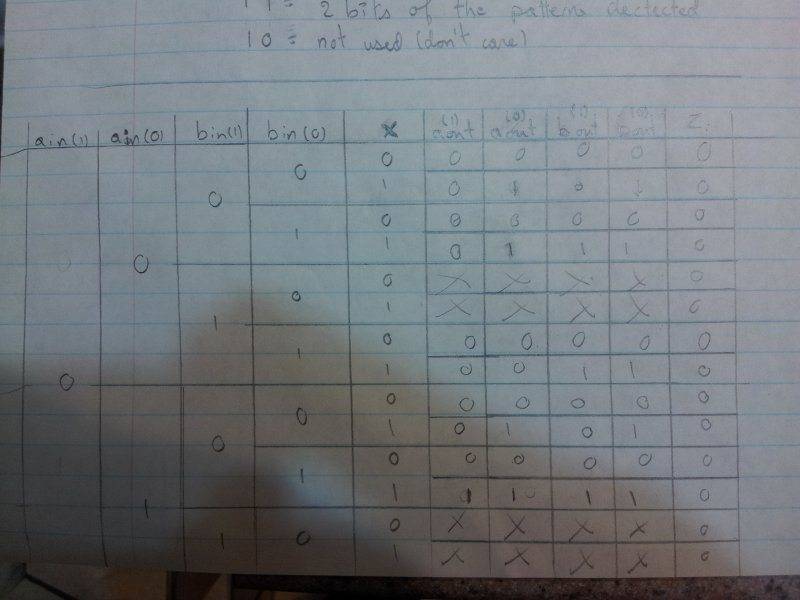 11 = 2 bits of the pattern dectected
10 = not used (don't care)
ain(1) ain(0) bin(1) bin(0) x (1) aout (0) aout (1) bout (0) bout Z
0 0 0 0 0 0 0 0 0 0
1 0 1 0 1 0
1 0 0 0 0 0 0
1 0 1 1 1 0
1 0 0 X X X X 0
1 X X X X 0
1 0 0 0 0 0 0
1 0 0 1 1 0
1 0 0 0 0 0 0 0 0
1 0 1 0 1 0
1 0 0 0 0 0 0
1 1 1 1 1 0
1 0 0 X X X X 0
1 X X X X 0